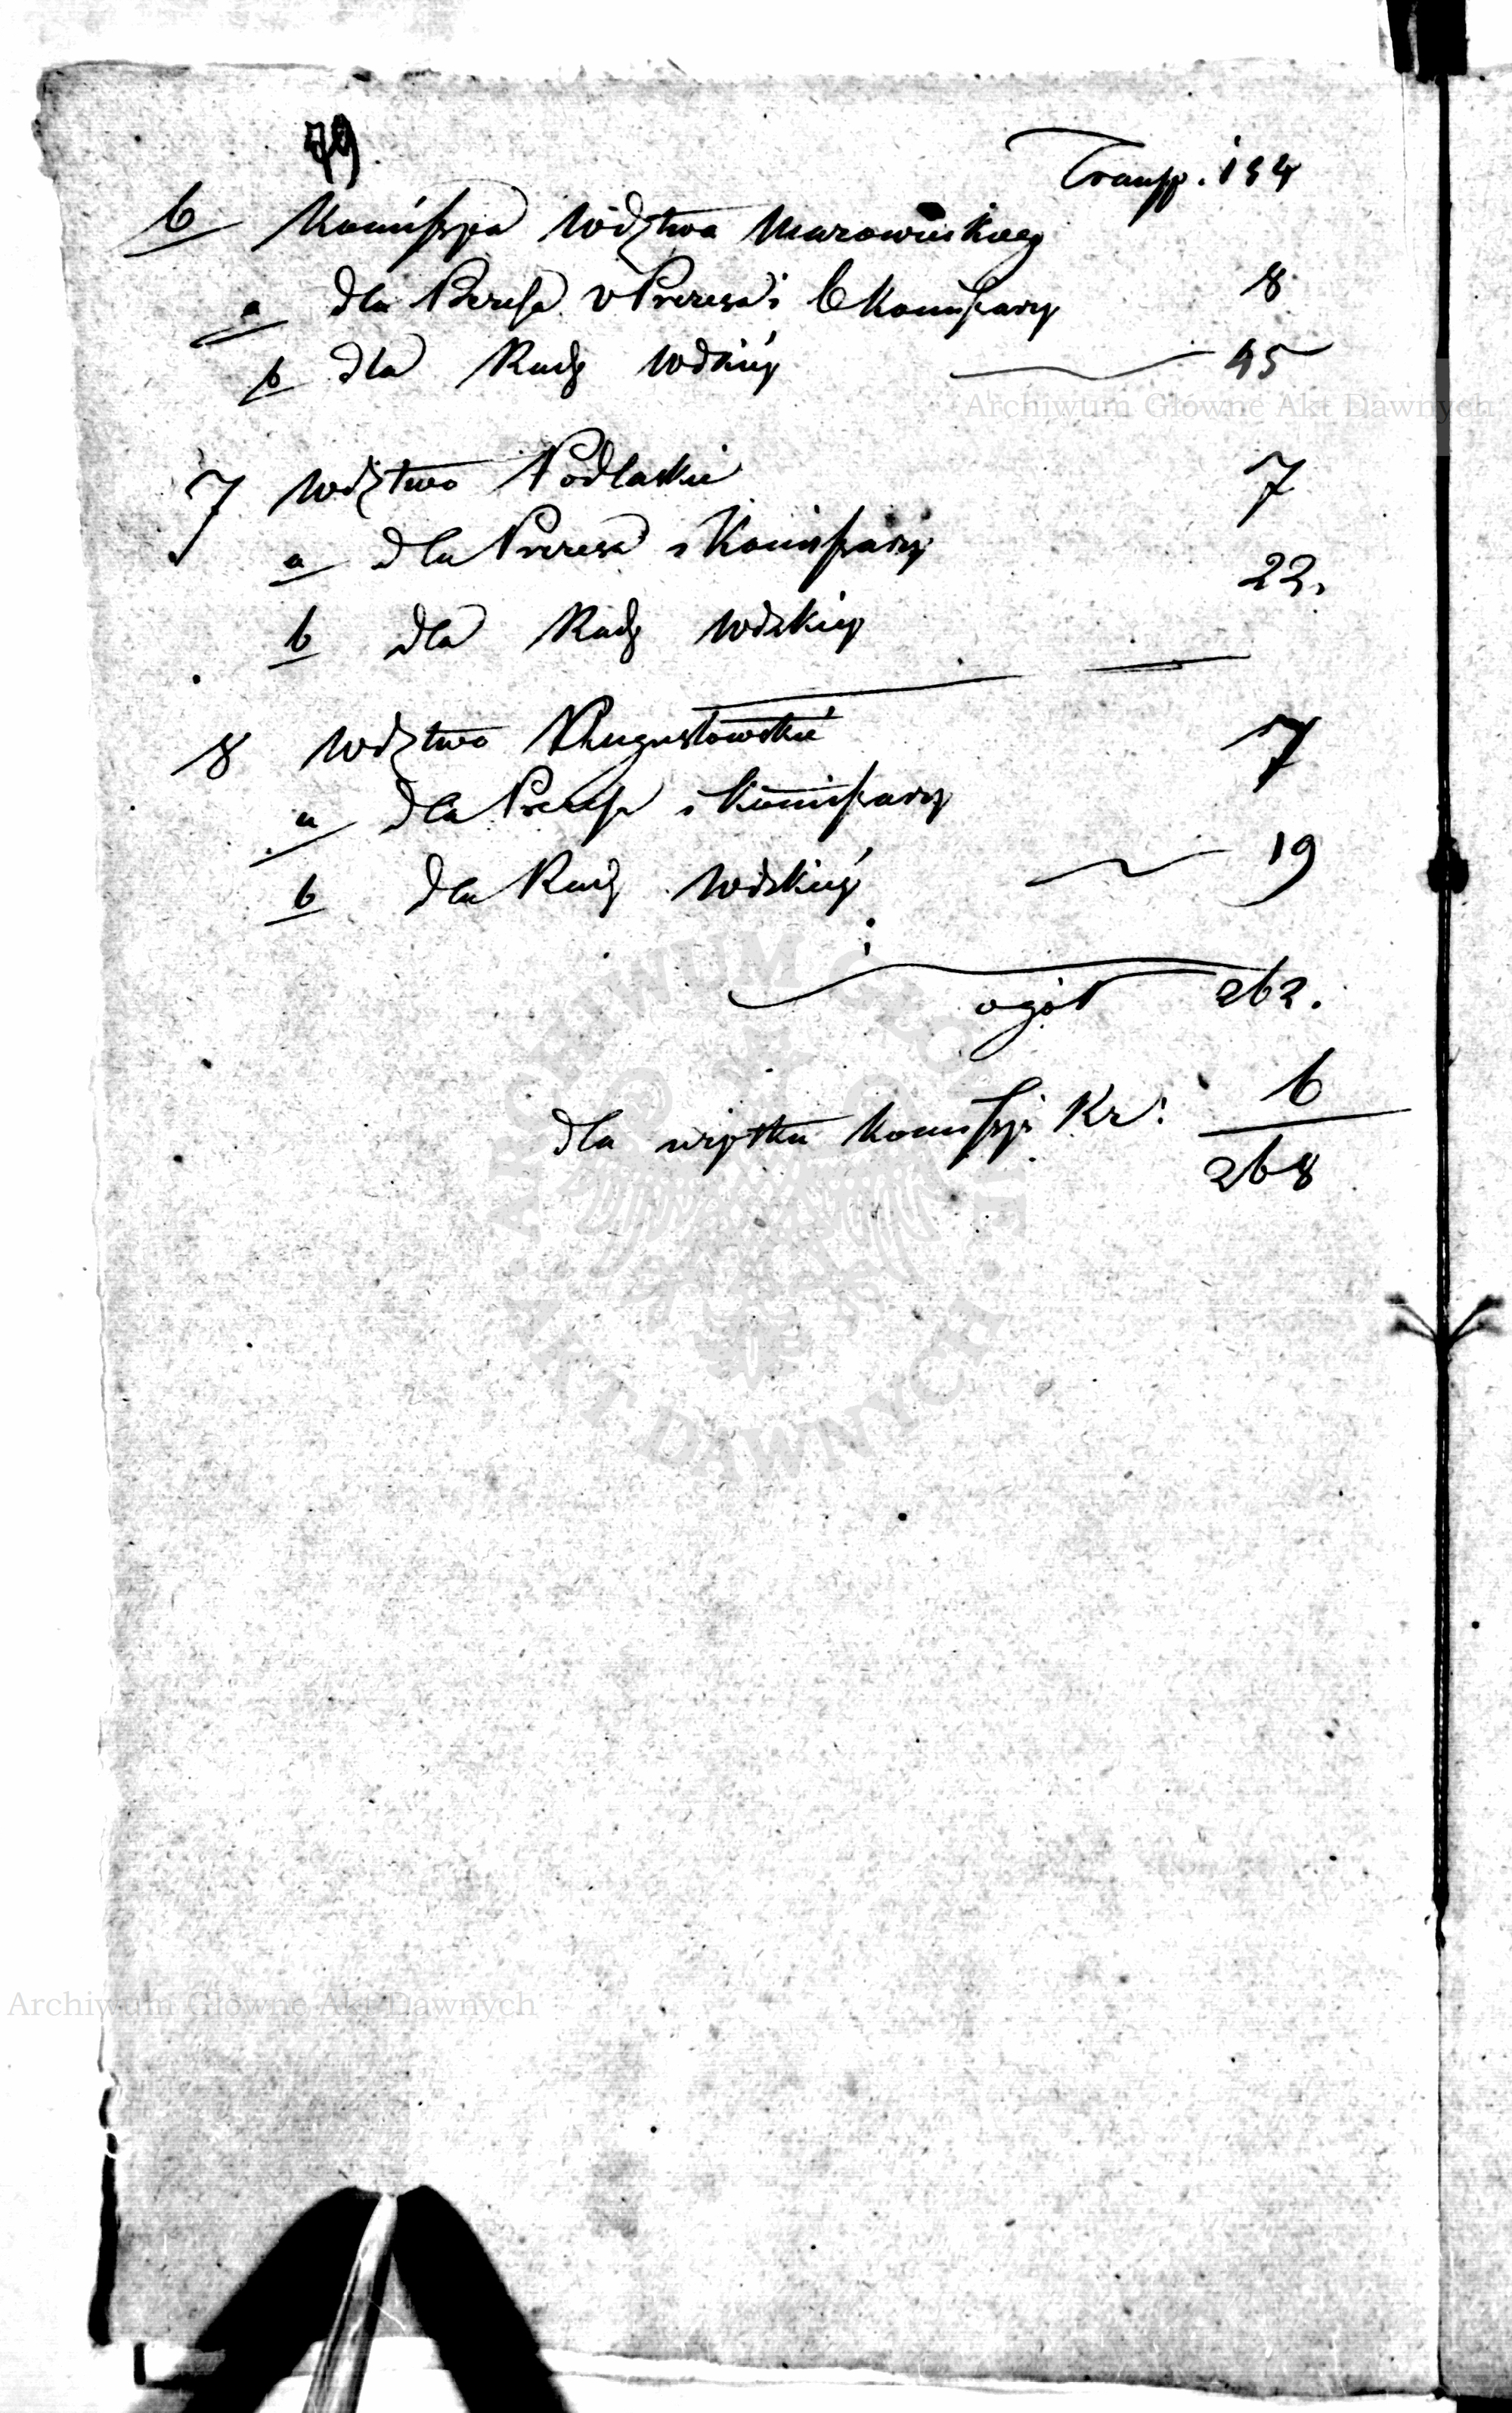 79
Transp. 154
6 Kommissya Wdztwa Mazowieckiego
a dla Prezesa V Prezesa i 6 Kommissarzy 8
b dla Rady Wdzkiéy 45
7 Wdztwo Podlaskie 7
a dla Prezesa i Kommissarzy
22.
b dla Rady Wdzkiéy
8 Wdztwo Augustowskie 7
a dla Prezesa i Kommissarzy
b dla Rady Wdzkiéy 19
ogół 262.
dla użytku Kommissyi Kr: 6
268
Archiwum Główne Akt Dawnych
ARCHIWUM GŁÓWNE AKT DAWNYCH
Archiwum Główne Akt Dawnych